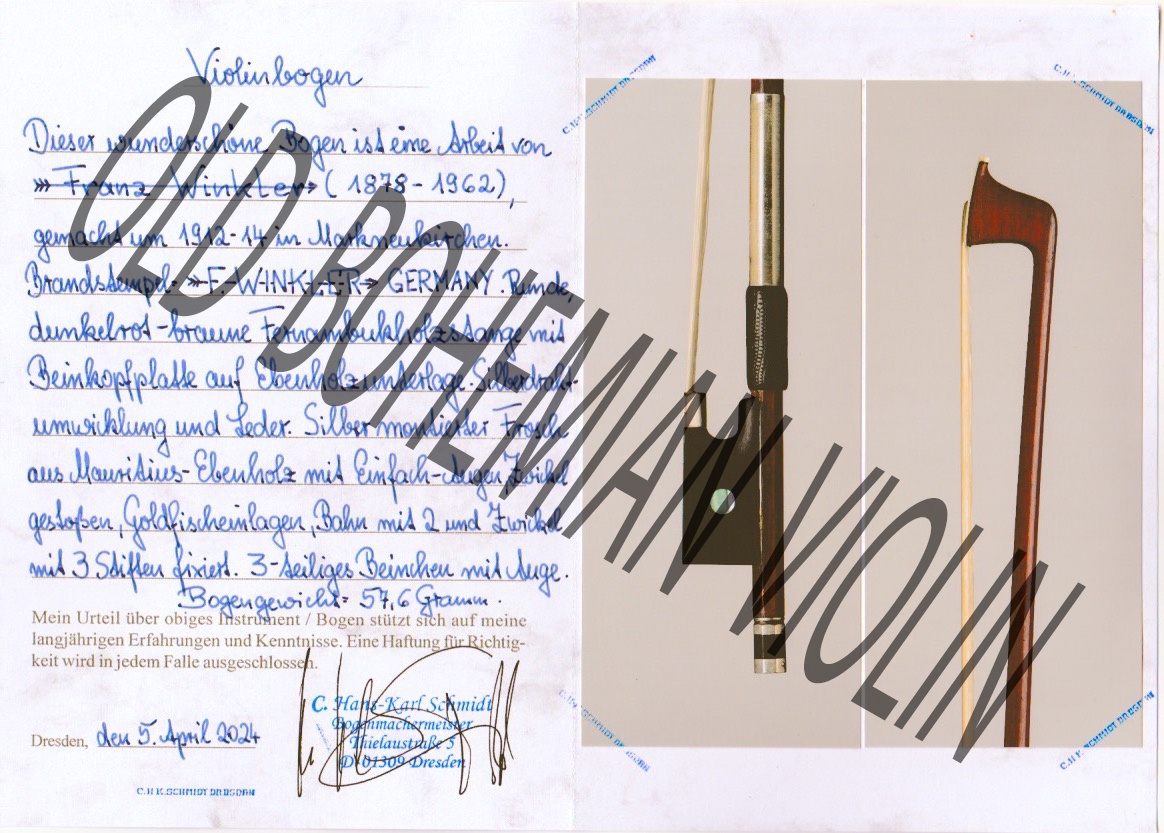 Violinbogen
Dieser wunderschöne Bogen ist eine Arbeit von
»Franz Winkler« (1878-1962),
gemacht um 1912-14 in Markneukirchen.
Brandstempel: »F. WINKLER« GERMANY. Runde,
dunkelrot-braune Fernambukholzstange mit
Beinkopfplatte auf Ebenholzunterlage. Silberdraht-
umwicklung und Leder. Silber montierter Frosch
aus Mauritius-Ebenholz mit Einfach-Augen, Zwickel
gestoßen, Goldfischeinlagen, Bahn mit 2 und Zwickel
mit 3 Stiften fixiert. 3-teiliges Beinchen mit Auge.
Bogengewicht= 57,6 Gramm.
Mein Urteil über obiges Instrument / Bogen stützt sich auf meine
langjährigen Erfahrungen und Kenntnisse. Eine Haftung für Richtig-
keit wird in jedem Falle ausgeschlossen.
C. Hans-Karl Schmidt
Bogenmachermeister
Thielaustraße 5
D-01309 Dresden
Dresden, den 5. April 2024
C.H K.SCHMIDT DRESDEN
C.H K.SCHMIDT DRESDEN
C.H K.SCHMIDT DRESDEN
C.H K.SCHMIDT DRESDEN
C.H K.SCHMIDT DRESDEN
OLD BOHEMIAN VIOLIN